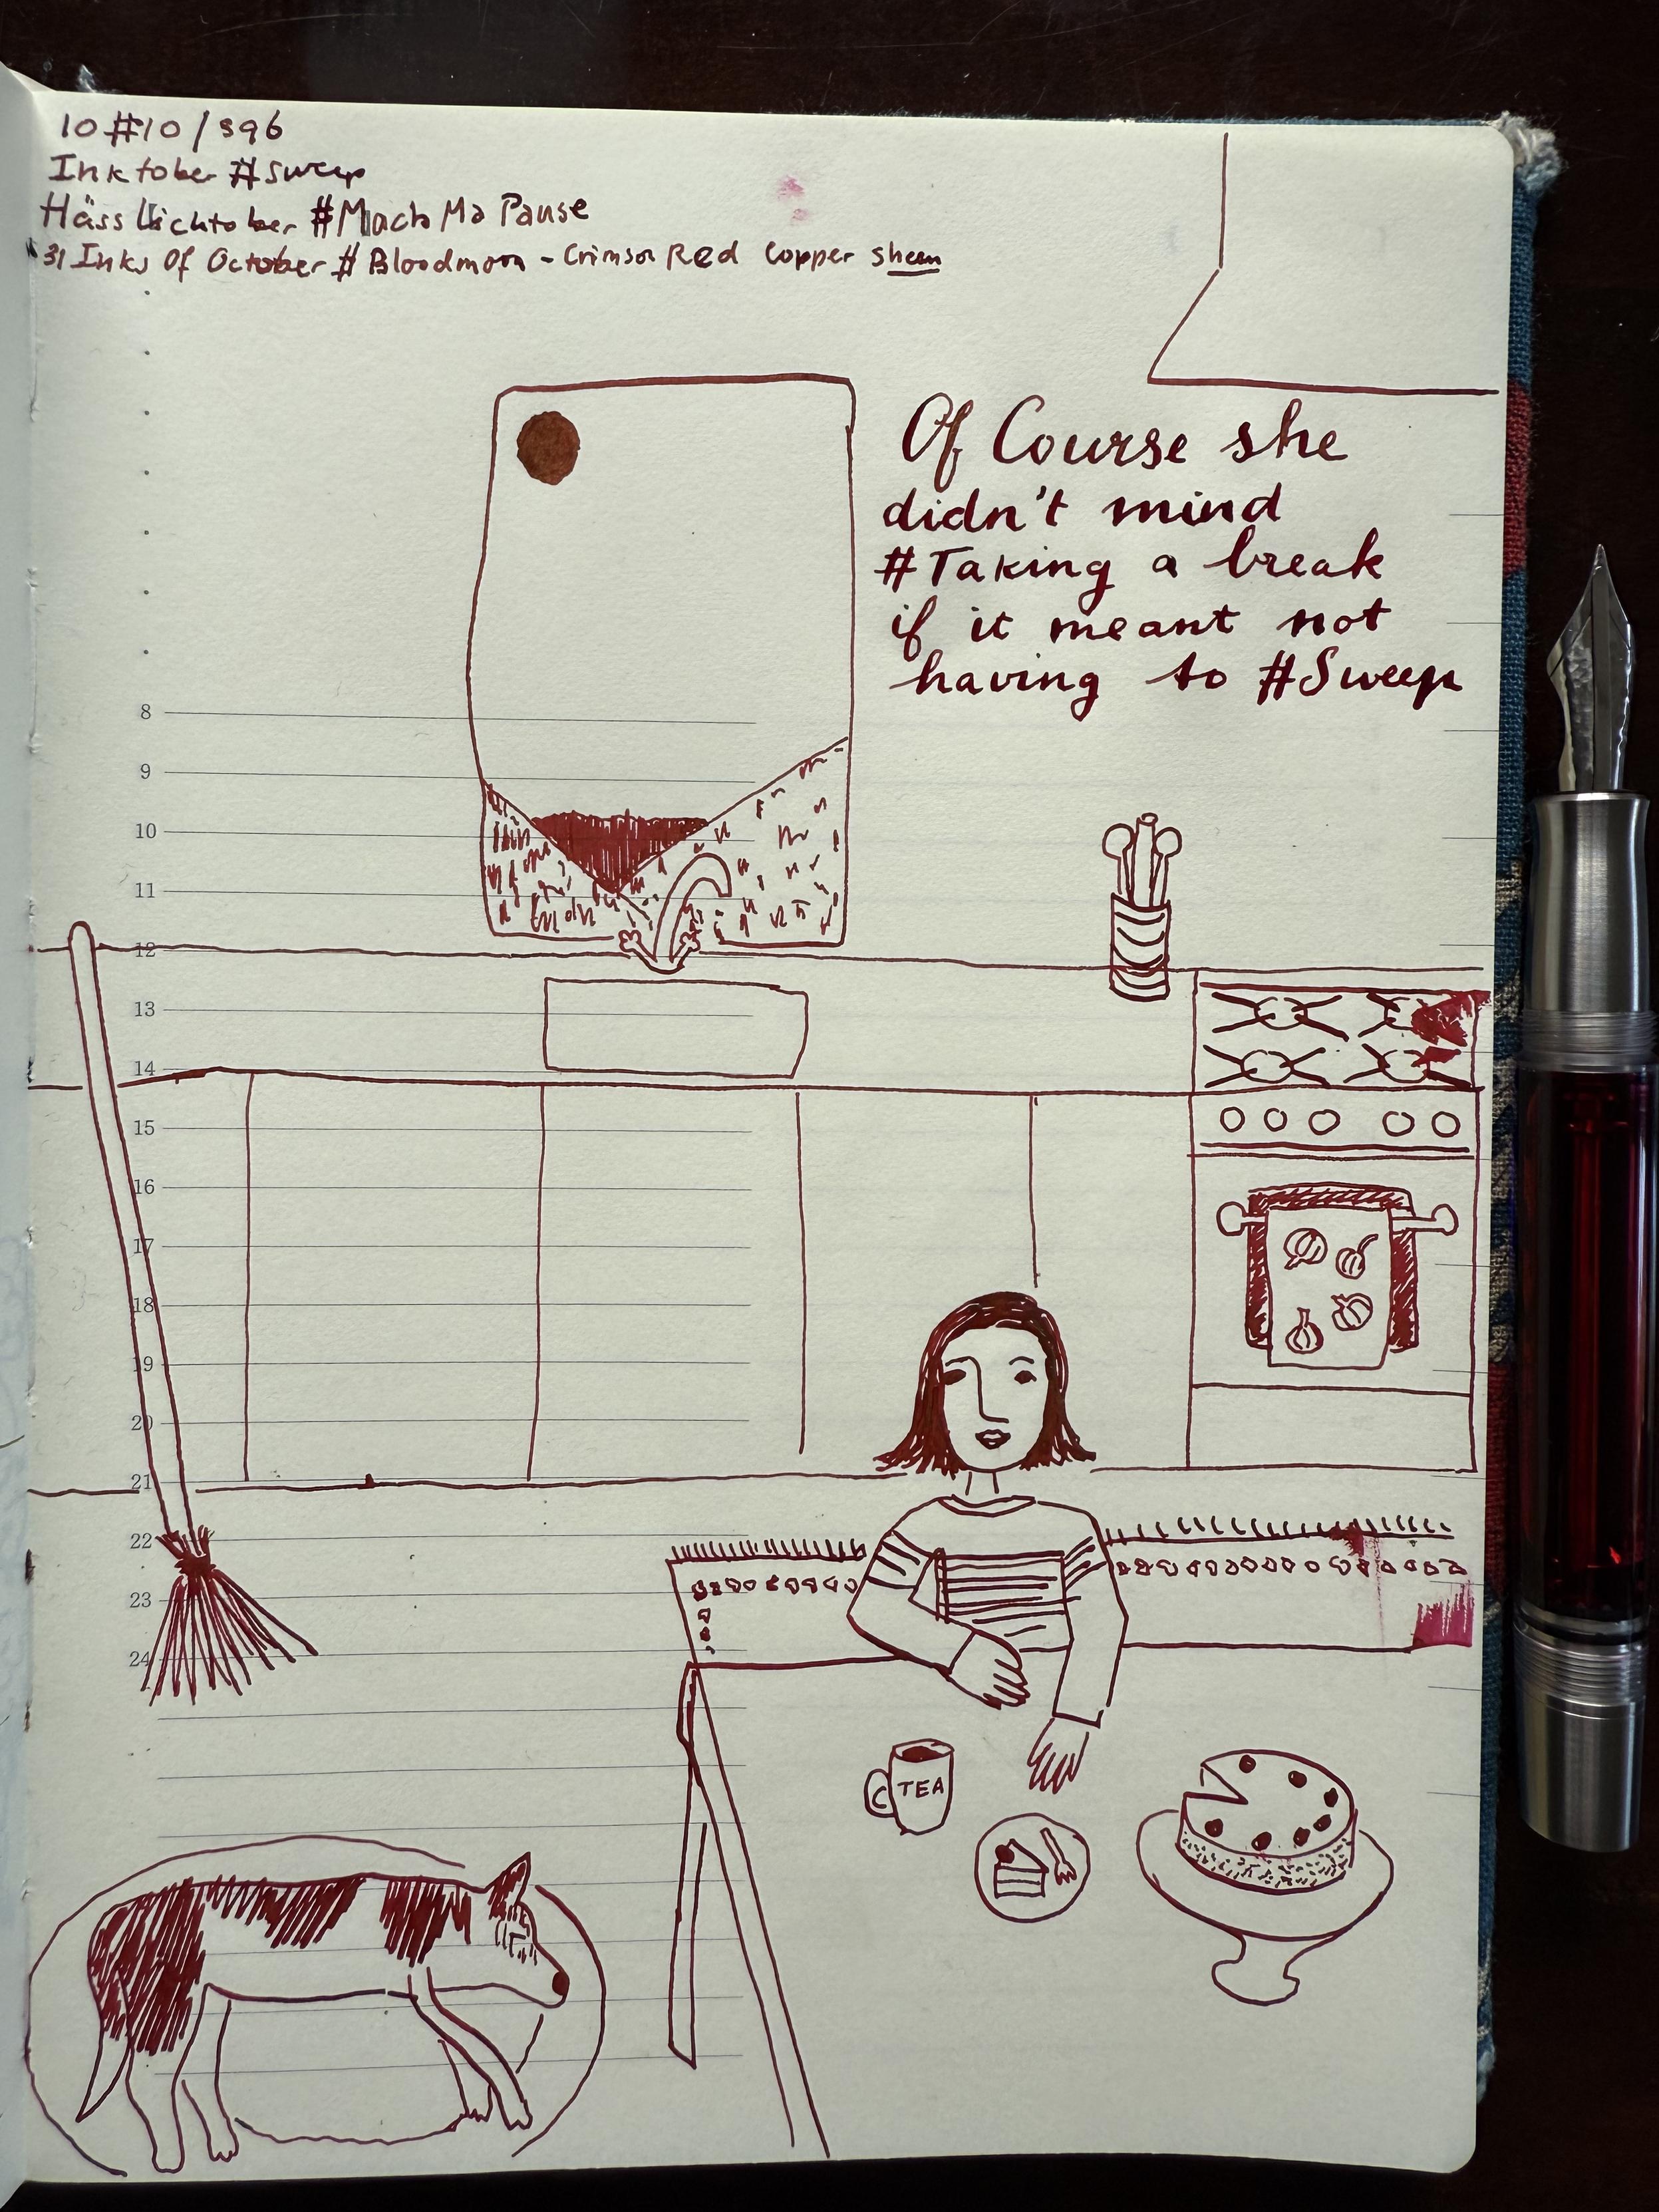 10#10/396
Inktober #Sweep
Hässlichtober #Mach Ma Pause
31 Inks Of October # Bloodmoon - Crimson Red Copper sheen
Of Course she
didn't mind
#Taking a break
if it meant not
having to #Sweep
8
9
10
11
12
13
14
15
16
17
18
19
20
21
22
23
24
TEA